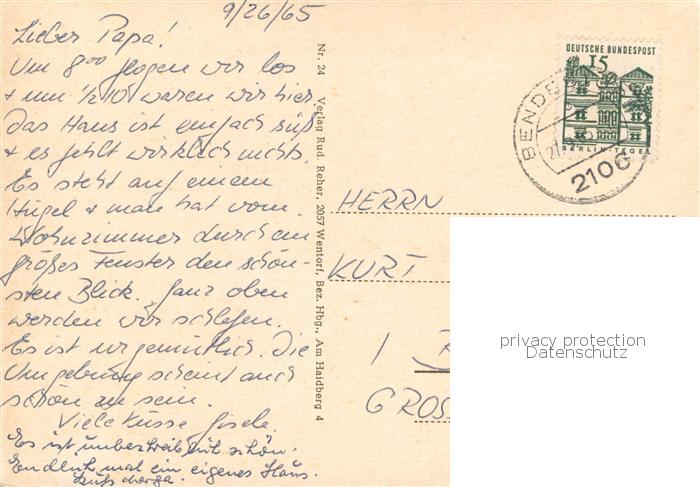 9/26/65
Lieber Papa!
Um 8⁰⁰ flogen wir los
+ um ½ 10 waren wir hier.
Das Haus ist einfach süß
+ es fehlt wirklich nichts.
Es steht auf einem
Hügel + man hat vom
Wohnzimmer durch ein
großes Fenster den schön-
sten Blick. Ganz oben
werden wir schlafen.
Es ist urgemütlich. Die
Umgebung scheint auch
schön zu sein.
Viele Küsse Gisela.
Es ist unbeschreiblich schön.
Endlich mal ein eigenes Haus.
Kuß
Nr. 24 Verlag Rud. Reher, 2057 Wentorf, Bez. Hbg., Am Haidberg 4
DEUTSCHE BUNDESPOST
15
BERLIN-TEGEL
BENDE
2106
HERRN
KURT
1
GROSS
privacy protection
Datenschutz